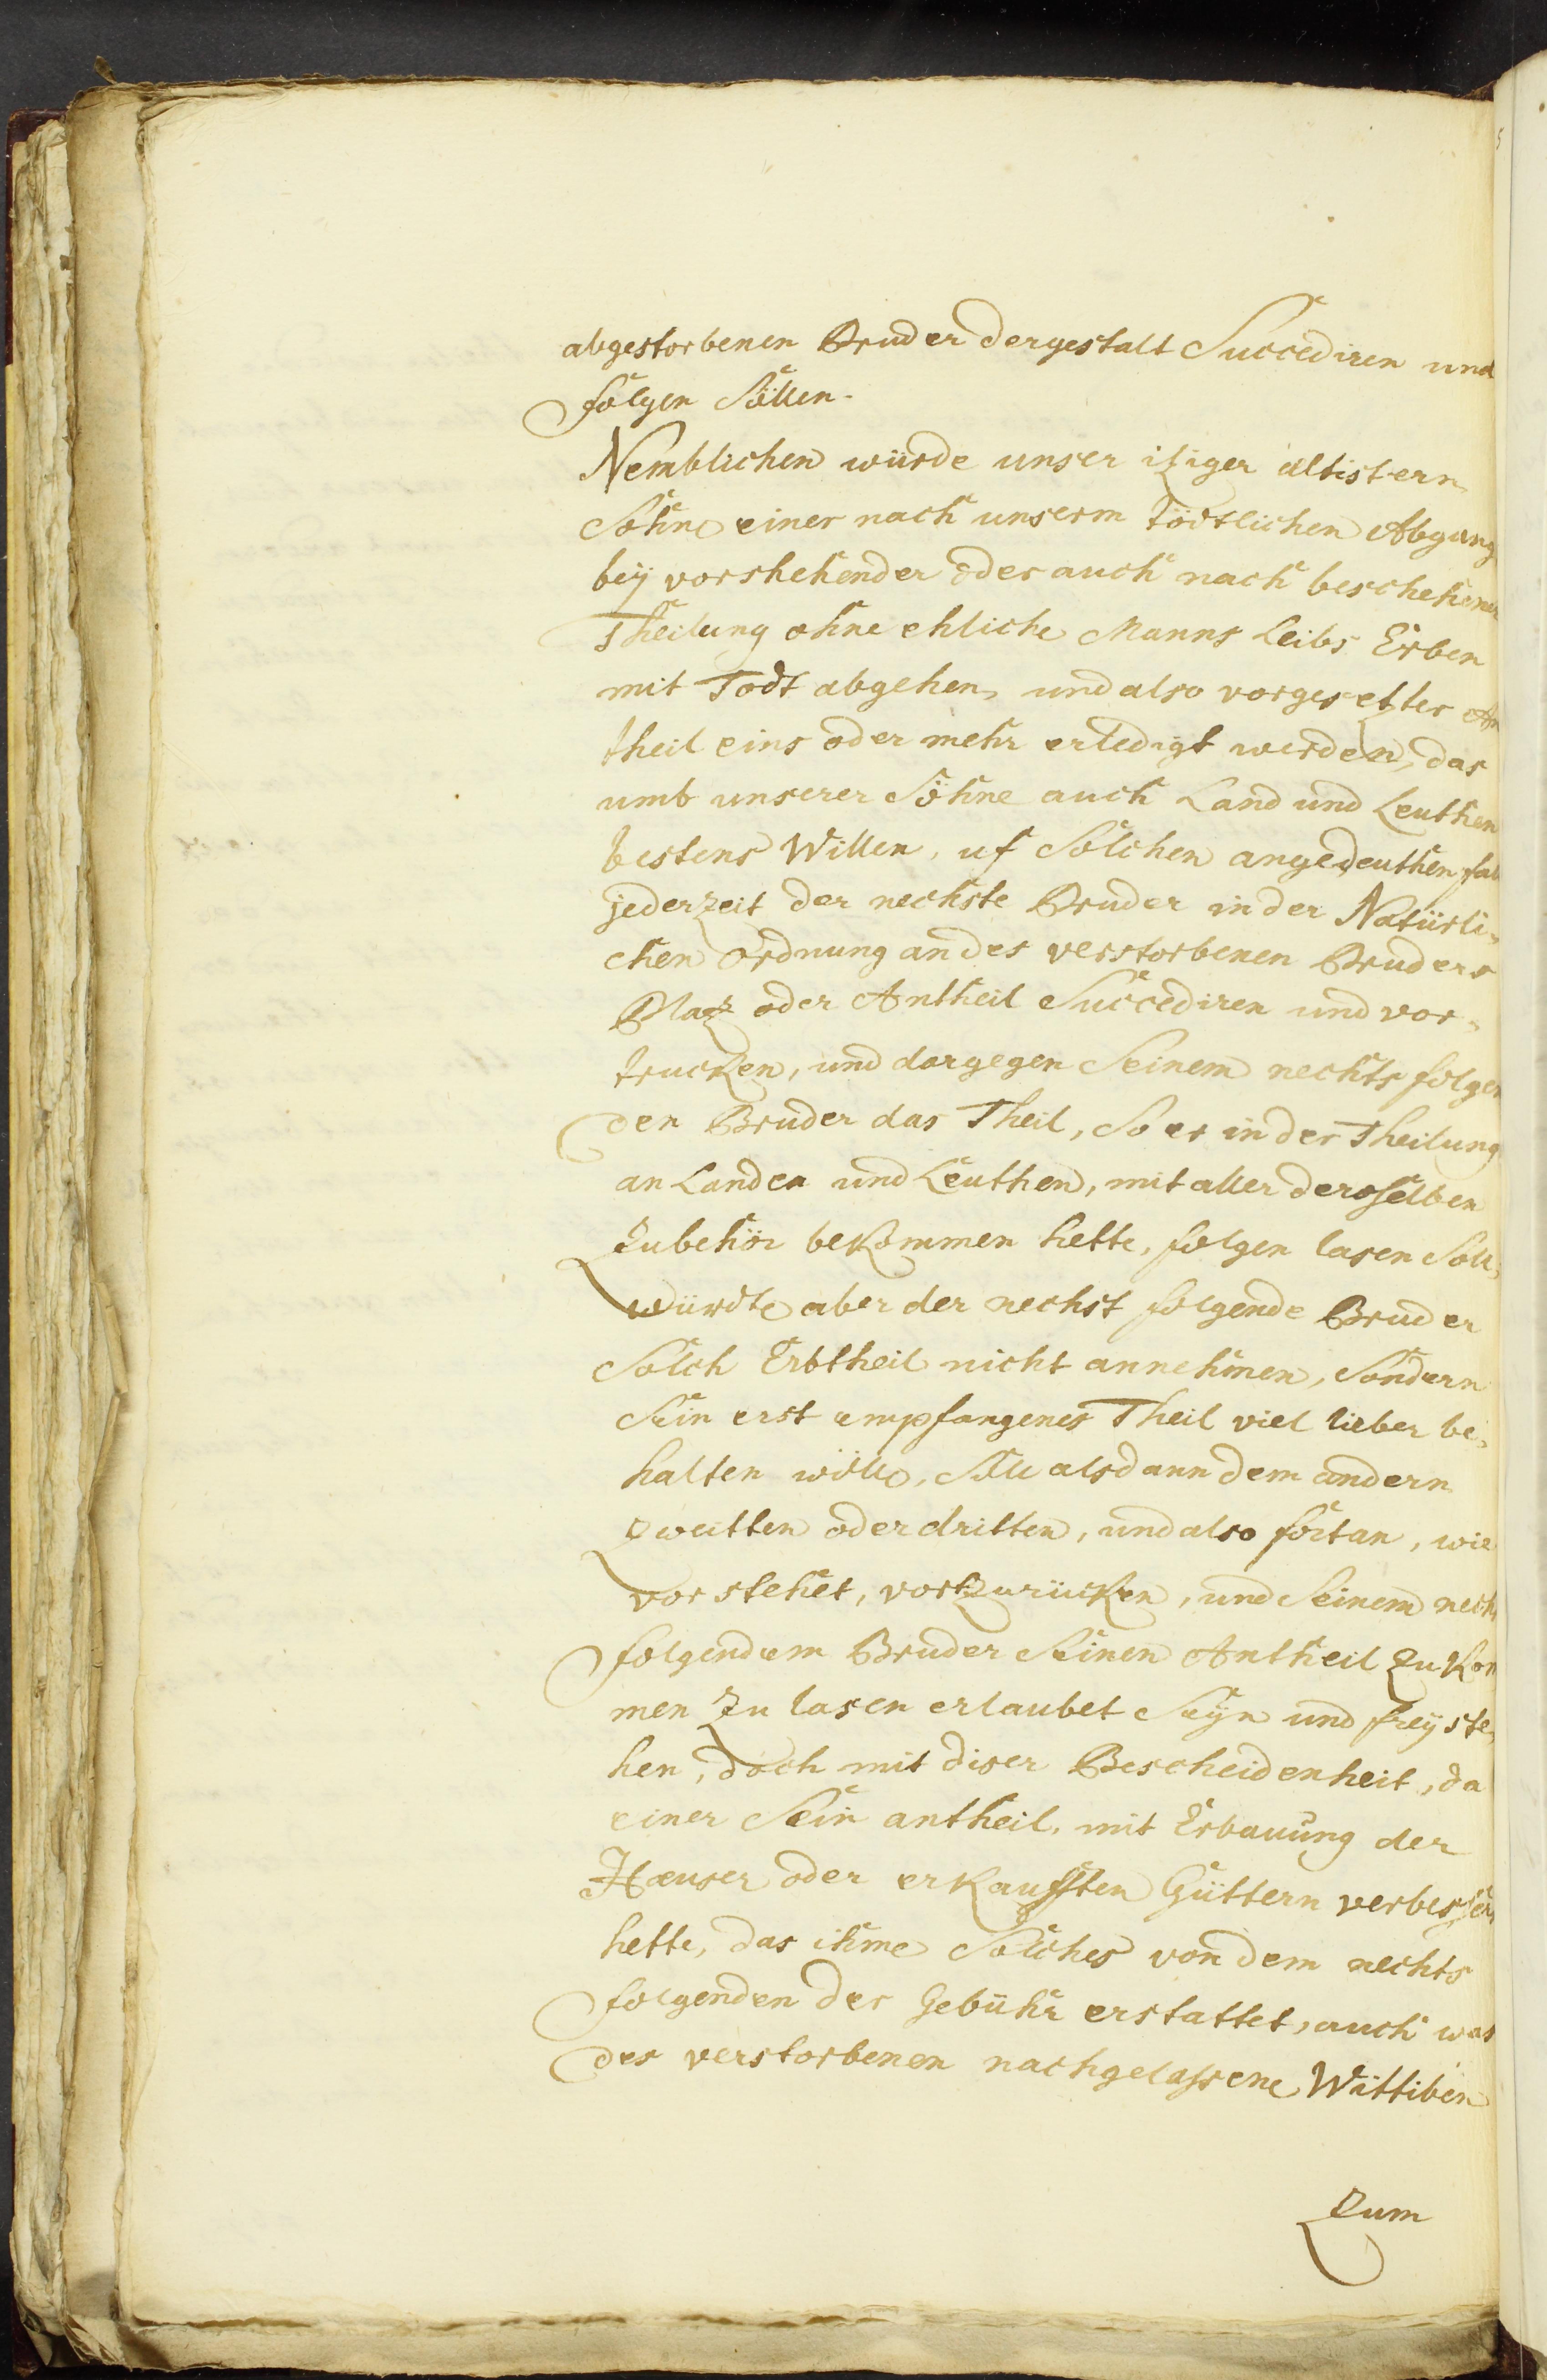 abgestorbenen Bruder dergestalt Succediren und
folgen Söllen.
Nemblichen würde unser iziger altistern
Söhne einer nach unserm tödtlichen Abgang
beÿ vorstehender oder auch nach beschehener
Theilung ohne ehliche Manns Leibs Erben
mit Todt abgehen, und also vorgesetzter An
theil eins oder mehr erledigt werden, das
umb unserer Söhne auch Land und Leuthen
bestens Willen, uf Solchen angedeuthen fall
jederzeit der nechste Bruder in der Natürli-
chen Ordnung an des verstorbenen Bruders
Plaz oder Antheil Succediren und vor-
trucken, und dargegen Seinem nechts folgen
den Bruder das Theil, So er in der Theilung
an Landen und Leuthen, mit aller deroselben
Zubehör bekommen hette, folgen lasen Soll,
würdte aber der nechst folgende Bruder
Solch Erbtheil nicht annehmen, Sondern
Sein erst empfangenes Theil viel lieber be-
halten wölle, Solle alsdann dem andern
zweitten oder dritten, und also fortan, wie
vor stehet, vortzurücken, und Seinem nechst
folgendem Bruder Seinen Antheil zu kom
men zu lasen erlaubet Seÿn und freÿ ste-
hen, doch mit diser Bescheidenheit, da
einer Sein antheil, mit Erbauung der
Hæuser oder erkaufften Güttern verbessert
hette, das ihme Solches von dem nechts
folgenden der Gebühr erstattet, auch was
des verstorbenen nachgelassene Wittiben
Zum